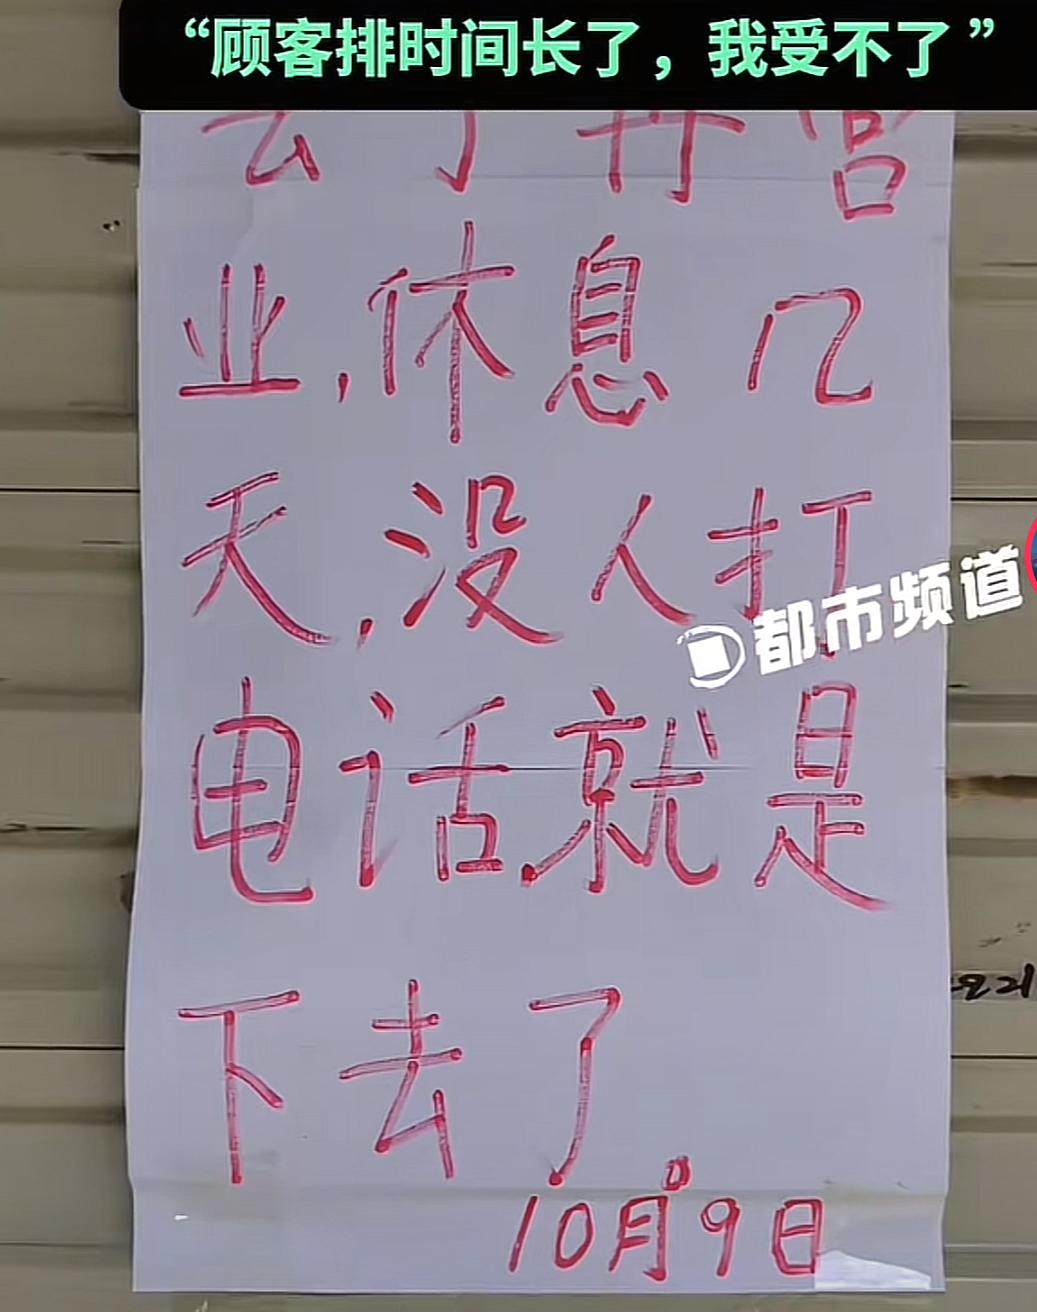 “顾客排时间长了，我受不了”
去了再营
业,休息几
天,没人打
都市频道
电话,就是
下去了。
10月9日